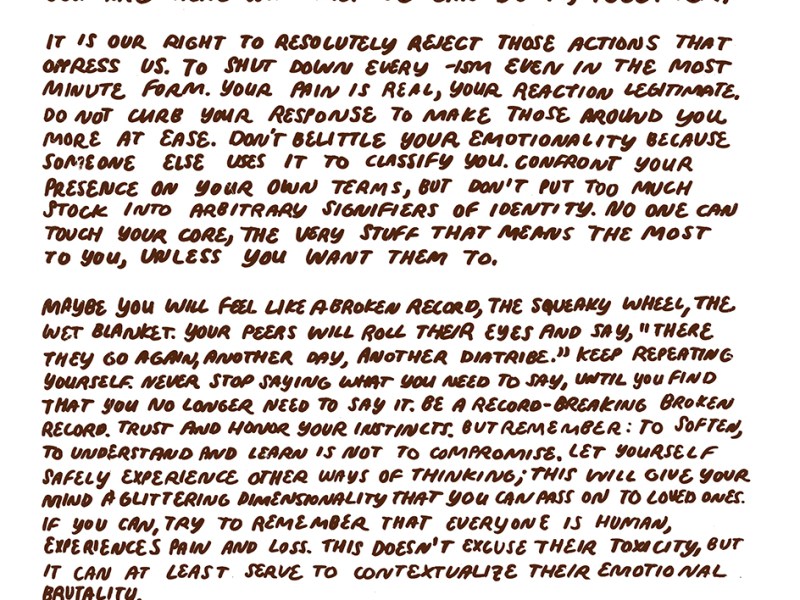 IT IS OUR RIGHT TO RESOLUTELY REJECT THOSE ACTIONS THAT
OPPRESS US. TO SHUT DOWN EVERY -ISM EVEN IN THE MOST
MINUTE FORM. YOUR PAIN IS REAL, YOUR REACTION LEGITIMATE.
DO NOT CURB YOUR RESPONSE TO MAKE THOSE AROUND YOU
MORE AT EASE. DON'T BELITTLE YOUR EMOTIONALITY BECAUSE
SOMEONE ELSE USES IT TO CLASSIFY YOU. CONFRONT YOUR
PRESENCE ON YOUR OWN TERMS, BUT DON'T PUT TOO MUCH
STOCK INTO ARBITRARY SIGNIFIERS OF IDENTITY. NO ONE CAN
TOUCH YOUR CORE, THE VERY STUFF THAT MEANS THE MOST
TO YOU, UNLESS YOU WANT THEM TO.
MAYBE YOU WILL FEEL LIKE A BROKEN RECORD, THE SQUEAKY WHEEL, THE
WET BLANKET. YOUR PEERS WILL ROLL THEIR EYES AND SAY, "THERE
THEY GO AGAIN, ANOTHER DAY, ANOTHER DIATRIBE." KEEP REPEATING
YOURSELF. NEVER STOP SAYING WHAT YOU NEED TO SAY, UNTIL YOU FIND
THAT YOU NO LONGER NEED TO SAY IT. BE A RECORD-BREAKING BROKEN
RECORD. TRUST AND HONOR YOUR INSTINCTS. BUT REMEMBER: TO SOFTEN,
TO UNDERSTAND AND LEARN IS NOT TO COMPROMISE. LET YOURSELF
SAFELY EXPERIENCE OTHER WAYS OF THINKING; THIS WILL GIVE YOUR
MIND A GLITTERING DIMENSIONALITY THAT YOU CAN PASS ON TO LOVED ONES.
IF YOU CAN, TRY TO REMEMBER THAT EVERYONE IS HUMAN,
EXPERIENCES PAIN AND LOSS. THIS DOESN'T EXCUSE THEIR TOXICITY, BUT
IT CAN AT LEAST SERVE TO CONTEXTUALIZE THEIR EMOTIONAL
BRUTALITY.